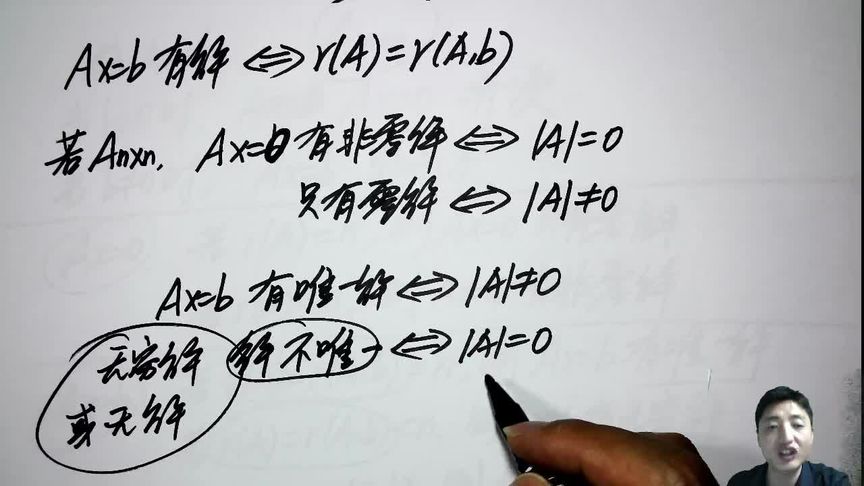 Ax=b 有解 ⇔ r(A)=r(A,b)
若 Anxn, Ax=0 有非零解 ⇔ |A|=0
只有零解 ⇔ |A|≠0
Ax=b 有唯一解 ⇔ |A|≠0
无穷解 解不唯一 ⇔ |A|=0
或无解